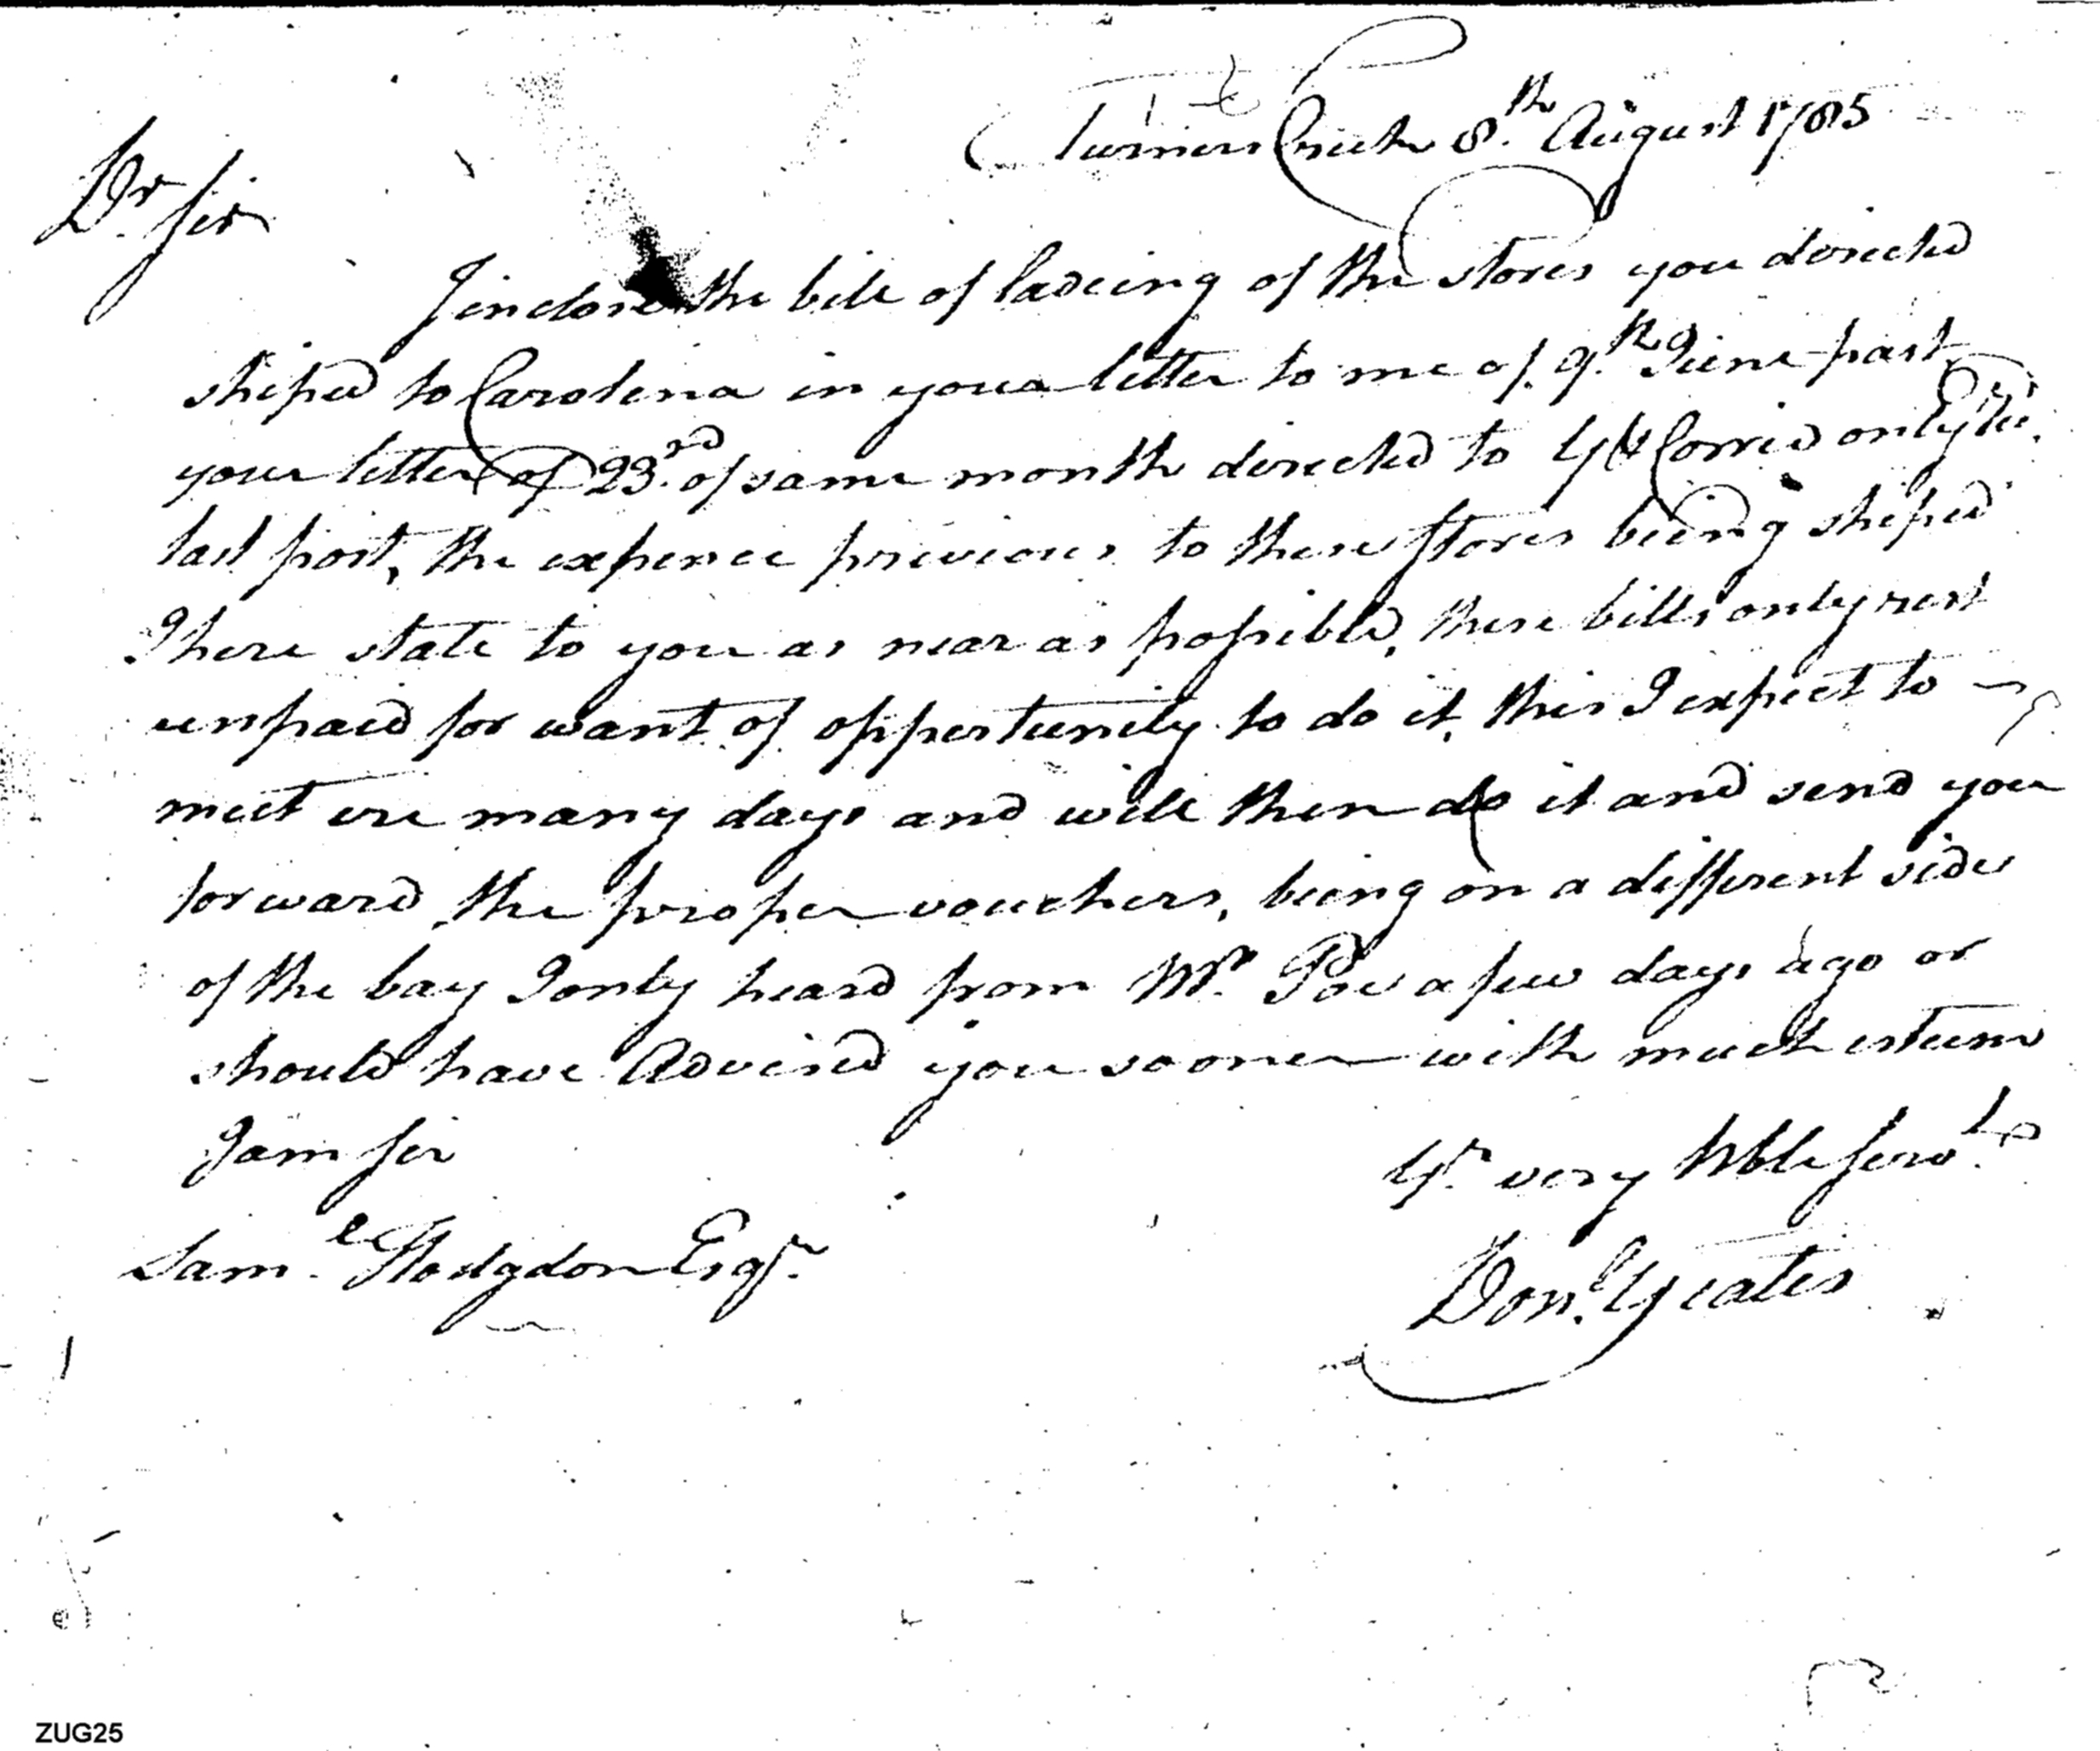 Turners Creek 8.th August 1785
Dr. Sir
I inclose the bill of ladeing of the stores you directed
shiped to Carolena in your letter to me of 9.th June past
your letter of 23.rd of same month directed to Y & Corrie only
last post, the expence previous to these Stores being shiped
I here state to you as near as possible, these bills only rest
unpaid for want of oppertunity to do it, this I expect to
meet ere many days and will then do it and send you
forward the proper vouchers, being on a different side
of the bay I only heard from Mr. Poe a few days ago or
should have Advised you sooner with much esteem
I am Sir
Yr. very Hble Servt.
Saml. Hodgdon Esqr.
Donl. Yeates
ZUG25